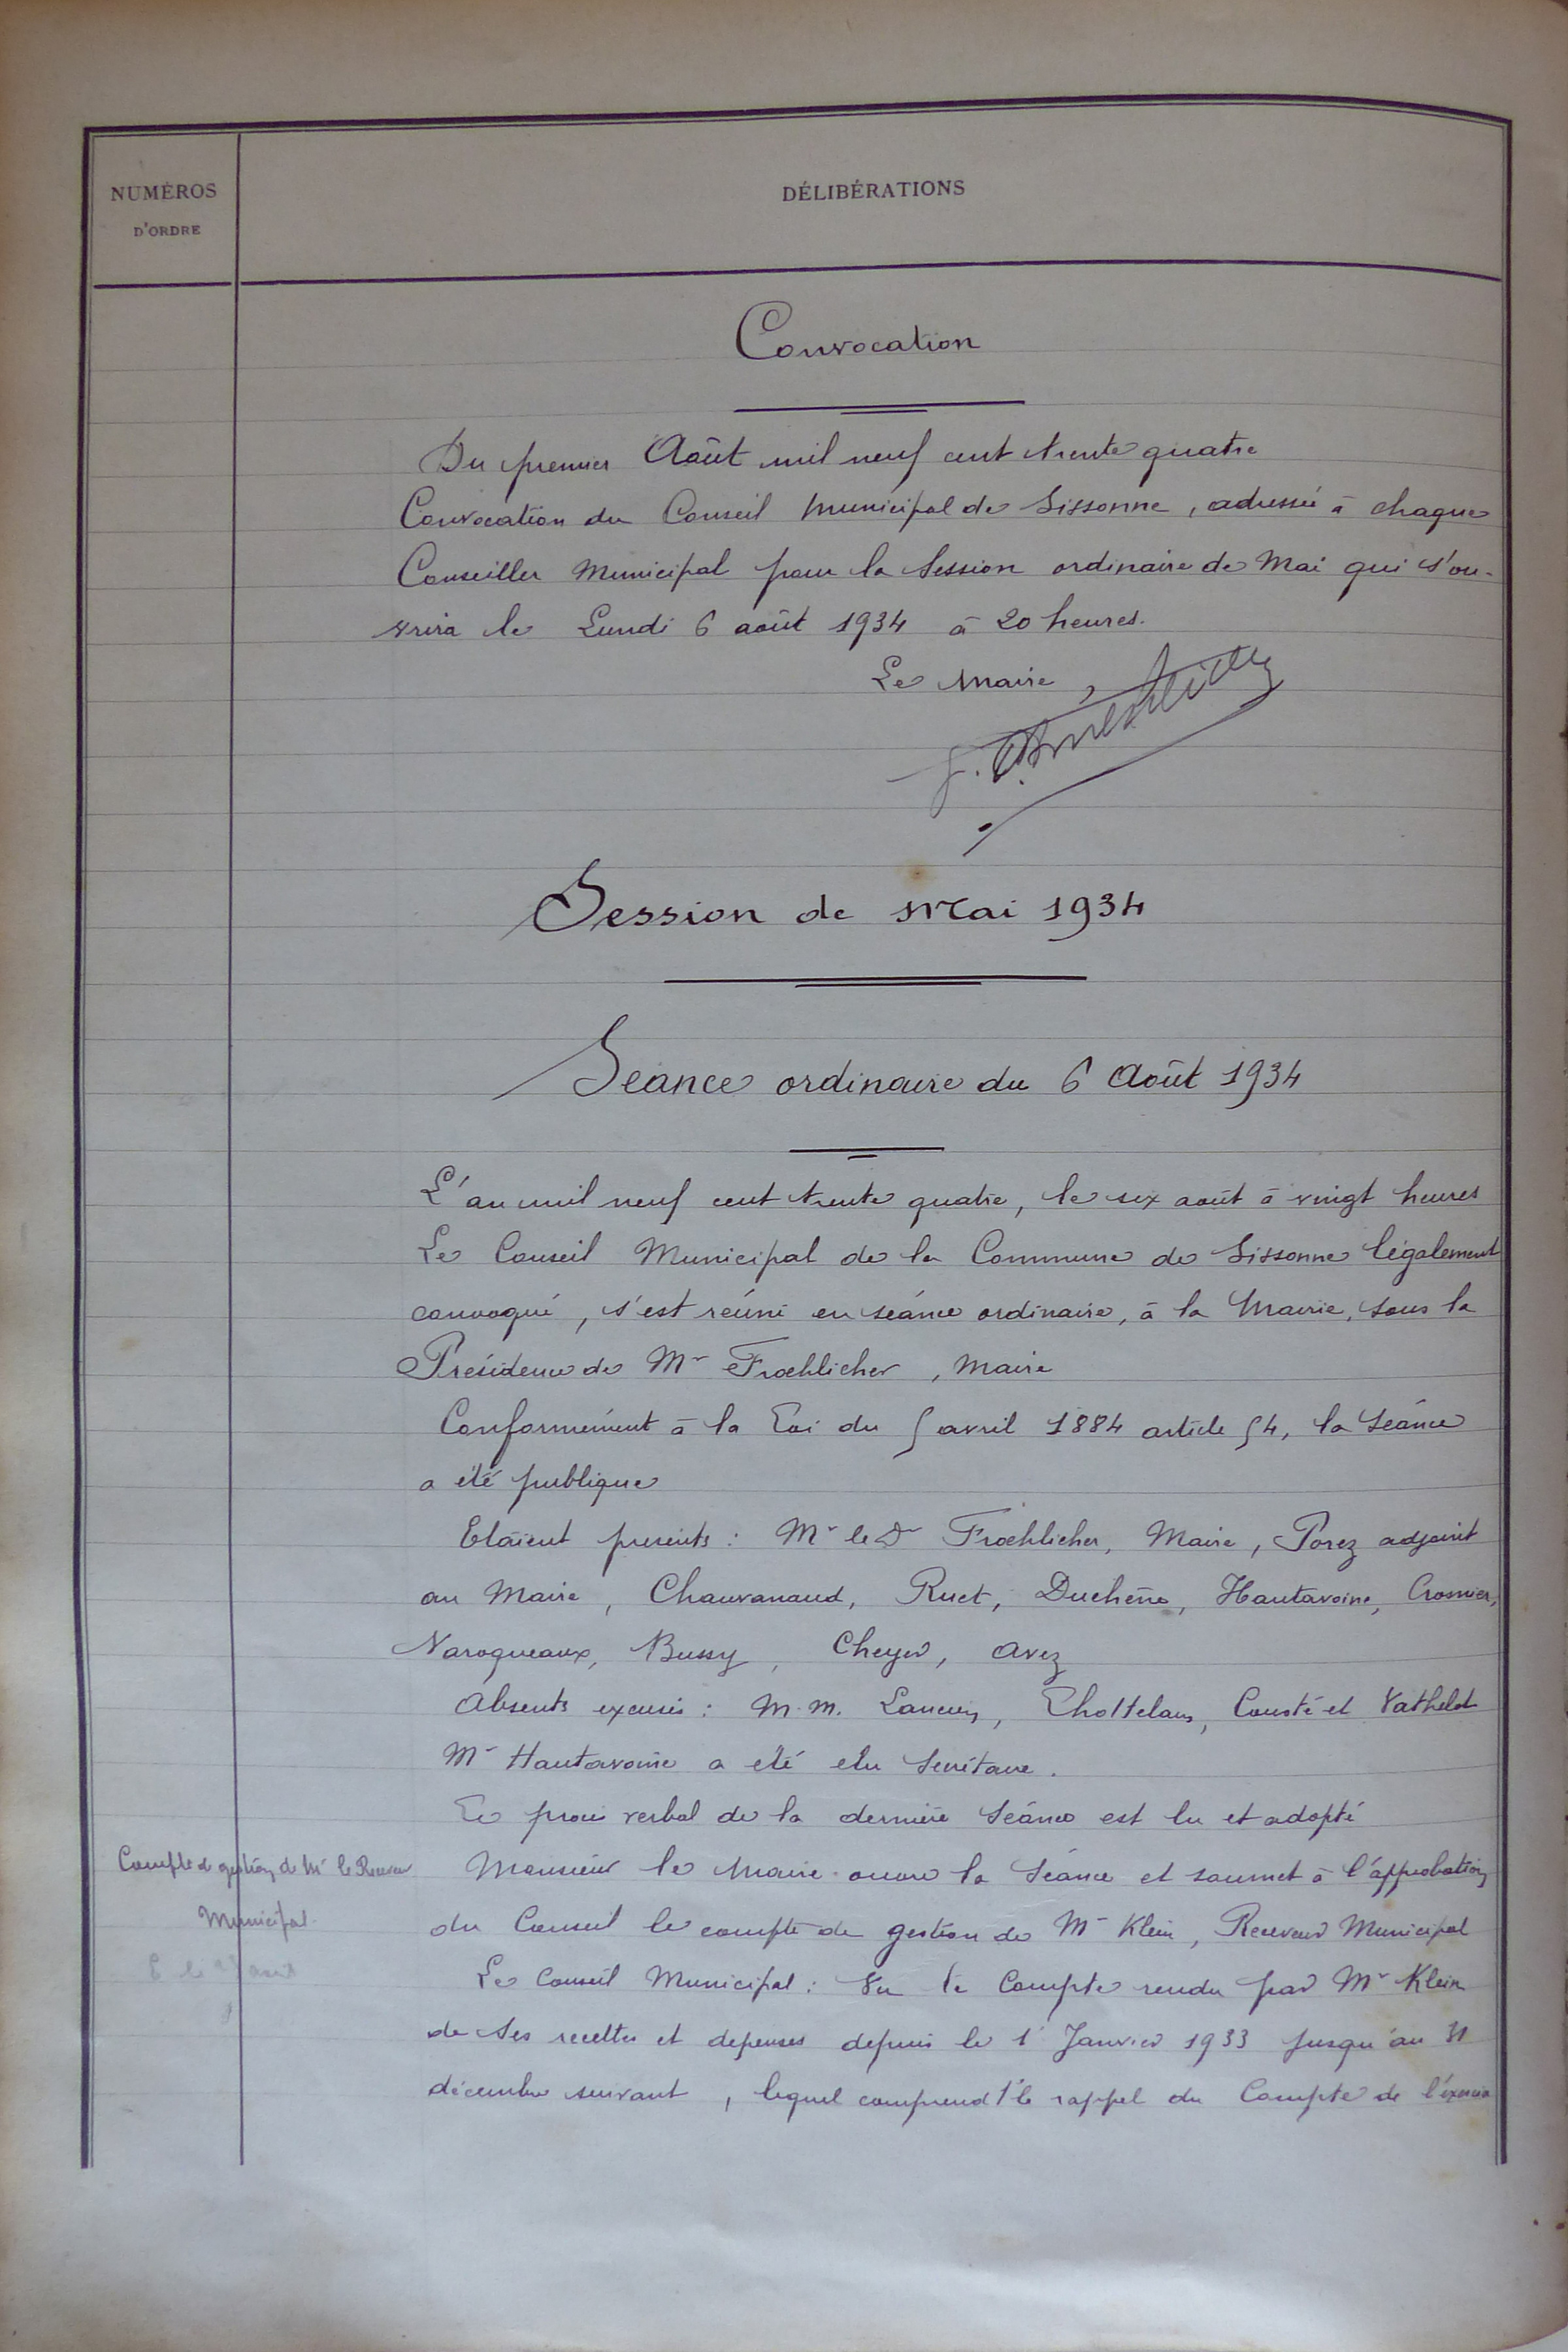 NUMÉROS
D'ORDRE
DÉLIBÉRATIONS
Convocation
Du premier Août mil neuf cent trente quatre
Convocation du Conseil Municipal de Sissonne, adressée à chaque
Conseiller Municipal pour la Session ordinaire de Mai qui s'ou-
vrira le Lundi 6 août 1934 à 20 heures.
Le Maire,
Session de Mai 1934
Séance ordinaire du 6 Août 1934
L'an mil neuf cent trente quatre, le six août à vingt heures
Le Conseil Municipal de la Commune de Sissonne légalement
convoqué, s'est réuni en séance ordinaire, à la Mairie, sous la
Présidence de Mr Froehlicher, Maire
Conformément à la Loi du 5 avril 1884 article 54, la Séance
a été publique
Etaient présents : Mr le Dr Froehlicher, Maire, Porez adjoint
au Maire, Chauvanaud, Ruet, Duchêne, Hautavoine, Crosnier,
Naroqueaux, Bussy, Cheyer, Avez
Absents excusés : M.M. Thottelans, Cousté et Vathelot
Mr Hautavoine a été élu Secrétaire.
Le procès verbal de la dernière Séance est lu et adopté
Compte de gestion de Mr le Receveur
Municipal.
Monsieur le Maire ouvre la Séance et soumet à l'approbation
du Conseil le compte de gestion de Mr Klein, Receveur Municipal
Le Conseil Municipal : Vu le Compte rendu par Mr Klein
de ses recettes et dépenses depuis le 1er Janvier 1933 jusqu'au 31
décembre suivant, lequel comprend 1° le rappel du Compte de l'exercice